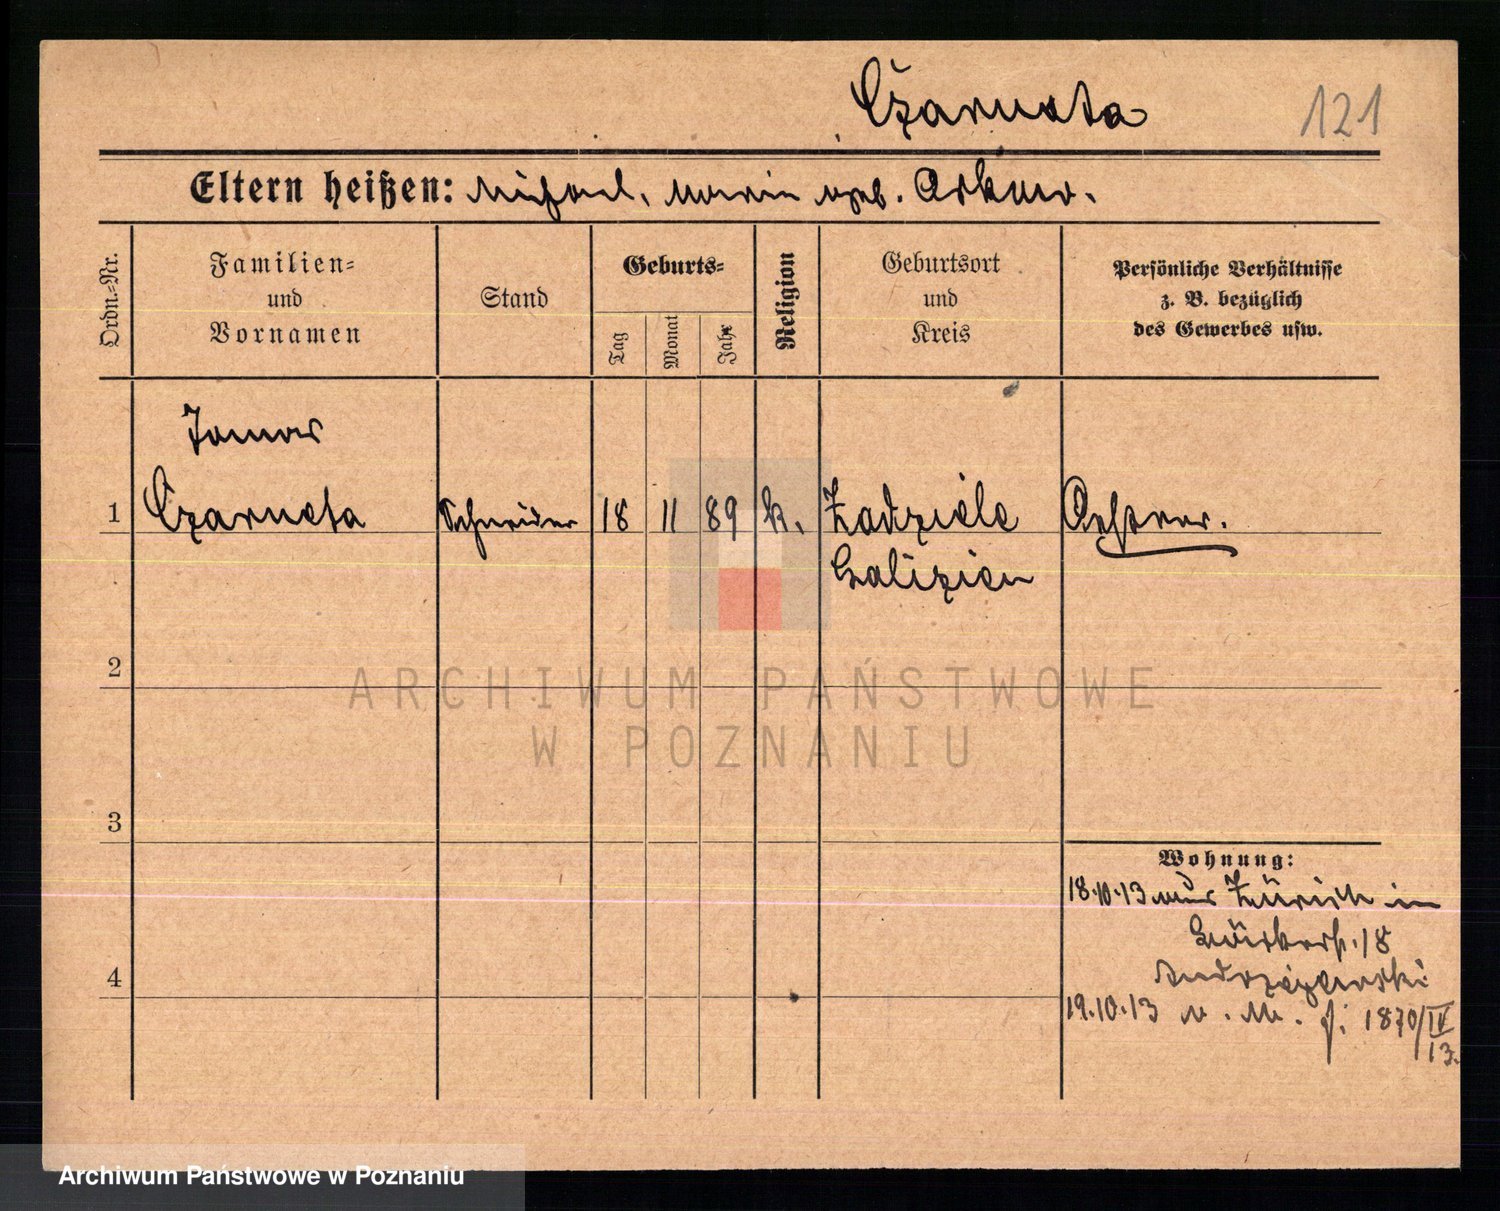 Czarnota
121
Eltern heißen: Michael, Maria geb.
Ordn.-Nr.
Familien-
und
Vornamen
Stand
Geburts-
Tag
Monat
Jahr
Religion
Geburtsort
und
Kreis
Persönliche Verhältnisse
z. B. bezüglich
des Gewerbes usw.
1
Czarnota
Schneider
18
11
89
k.
Zadziele
Galizien
Oesterr.
2
ARCHIWUM PAŃSTWOWE
W POZNANIU
3
Wohnung:
18.10.13 aus Zürich in
18
Andrzejewski
4
19.10.13 n. M. J. 1870/IV
13.
Archiwum Państwowe w Poznaniu